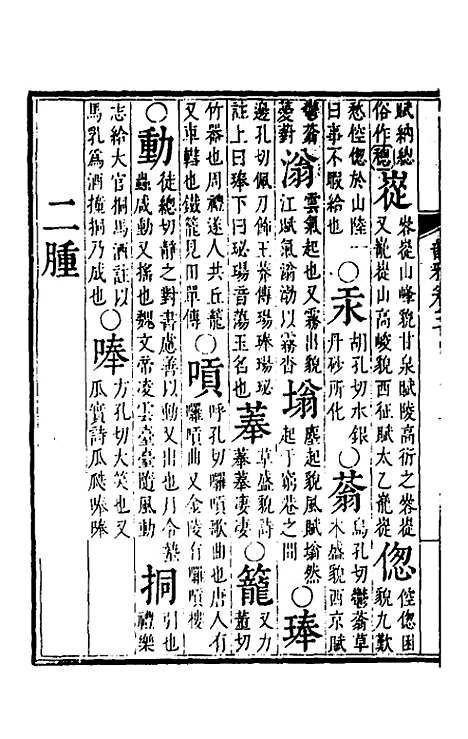 賦納總俗作緫嵸嵾嵸山峰貌甘泉賦陵高衍之嵾嵸又巃嵸山高峻貌西征賦太乙巃嵸偬倥偬困貌九歎
愁倥偬於山陸一曰事不暇給也○汞胡孔切水銀丹砂所化○蓊烏孔切鬱蓊草木盛貌西京賦
鬱蓊薆對滃雲氣起也又霧出貌江賦氣滃渤以霧杳塕塵起貌風賦塕然起于窮巷之間○琫
邊孔切佩刀飾王莽傳瑒琫瑒珌註上曰琫下曰珌瑒音蕩玉名也菶草盛貌詩菶菶萋萋○籠又力董切
竹器也周禮遂人共丘籠又車轊也鐵籠見田單傳○嗊呼孔切囉嗊歌曲也唐人有囉嗊曲又金陵有囉嗊樓
○動徒總切靜之對書慮善以動又出也月令蟄蟲咸動又搖也魏文帝凌雲臺臺隨風動挏引也禮樂
志給大官挏馬酒註以馬乳為酒撞挏乃成也○唪方孔切大笑也又瓜實詩瓜瓞唪唪
二腫